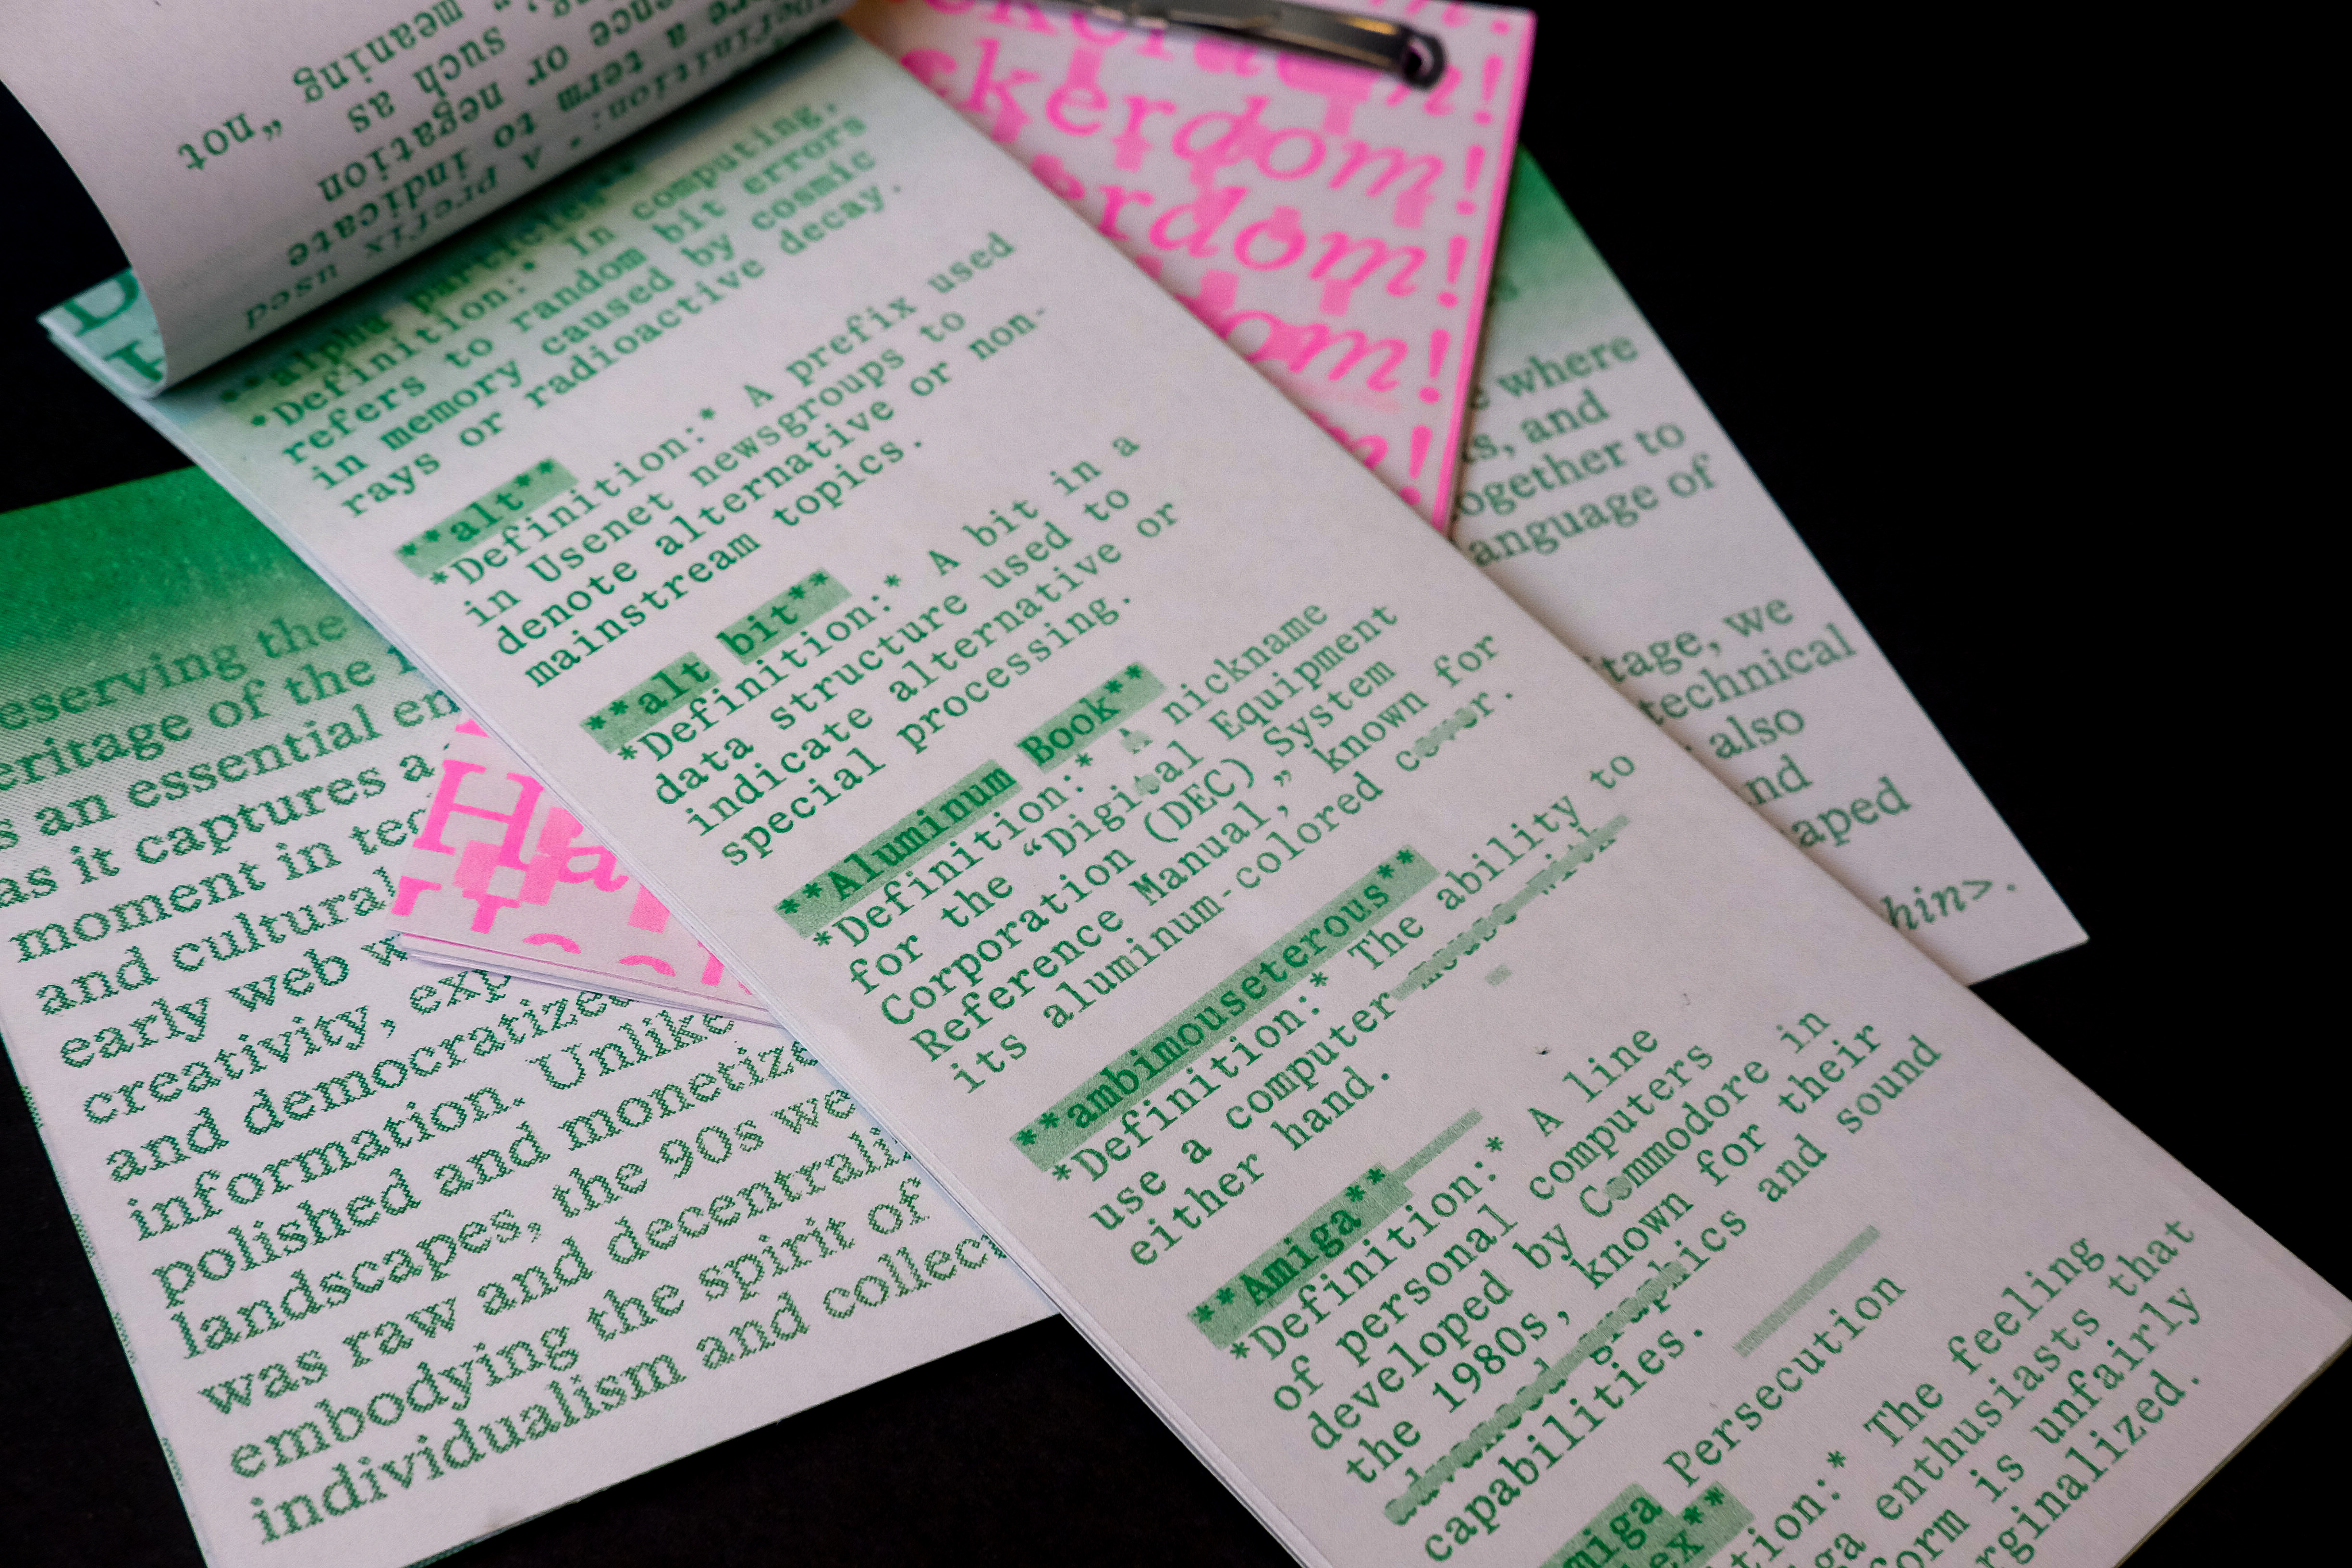 Definition:* A prefix used
term to indicate
a negation
or such as
meaning "not
**alpha particles**
*Definition:* In computing,
refers to random bit errors
in memory caused by cosmic
rays or radioactive decay.
**alt**
*Definition:* A prefix used
in Usenet newsgroups to
denote alternative or non-
mainstream topics.
**alt bit**
*Definition:* A bit in a
data structure used to
indicate alternative or
special processing.
**Aluminum Book**
*Definition:* A nickname
for the “Digital Equipment
Corporation (DEC) System
Reference Manual,” known for
its aluminum-colored cover.
**ambimouseterous**
*Definition:* The ability to
use a computer mouse with
either hand.
**Amiga**
*Definition:* A line
of personal computers
developed by Commodore in
the 1980s, known for their
advanced graphics and sound
capabilities.
miga Persecution
ex**
tion:* The feeling
ga enthusiasts that
form is unfairly
rginalized.
ckerdom!
ckerdom!
kerdom!
dom!
m!
Ha
eserving the
eritage of the
s an essential en
as it captures a
moment in tec
and cultural
early web w
creativity, exp
and democratized
information. Unlike
polished and monetize
landscapes, the 90s we
was raw and decentrali
embodying the spirit of
individualism and collect
e where
s, and
ogether to
anguage of
tage, we
technical
also
nd
aped
hin>.